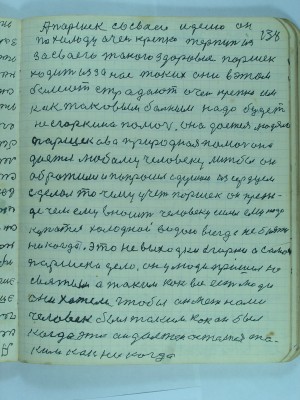 А паршек со своей идеею он
138
по холоду очен крепко терпит из
за своего такого здоровья паршек
ходит из за нас таких они в этом
болеют страдают очен прежде им
как таковым больным надо будет
помоч. она дается людям
паршеково природная помоч она
дается любому человеку лишбы он
обратился и попросил с душою и сердцем
сделал то чему учит паршек он преж-
де чем ему вносит человеку силы ему надо
купатся холодной водою везде не боятся
никогда. Это не выходит с самого
паршека дело, он у люди пришел не
святым а таким как все есть люди
они хотели чтобы он жет нами
человек был таким как он был
когда это он должен остатся та-
ким как никогда